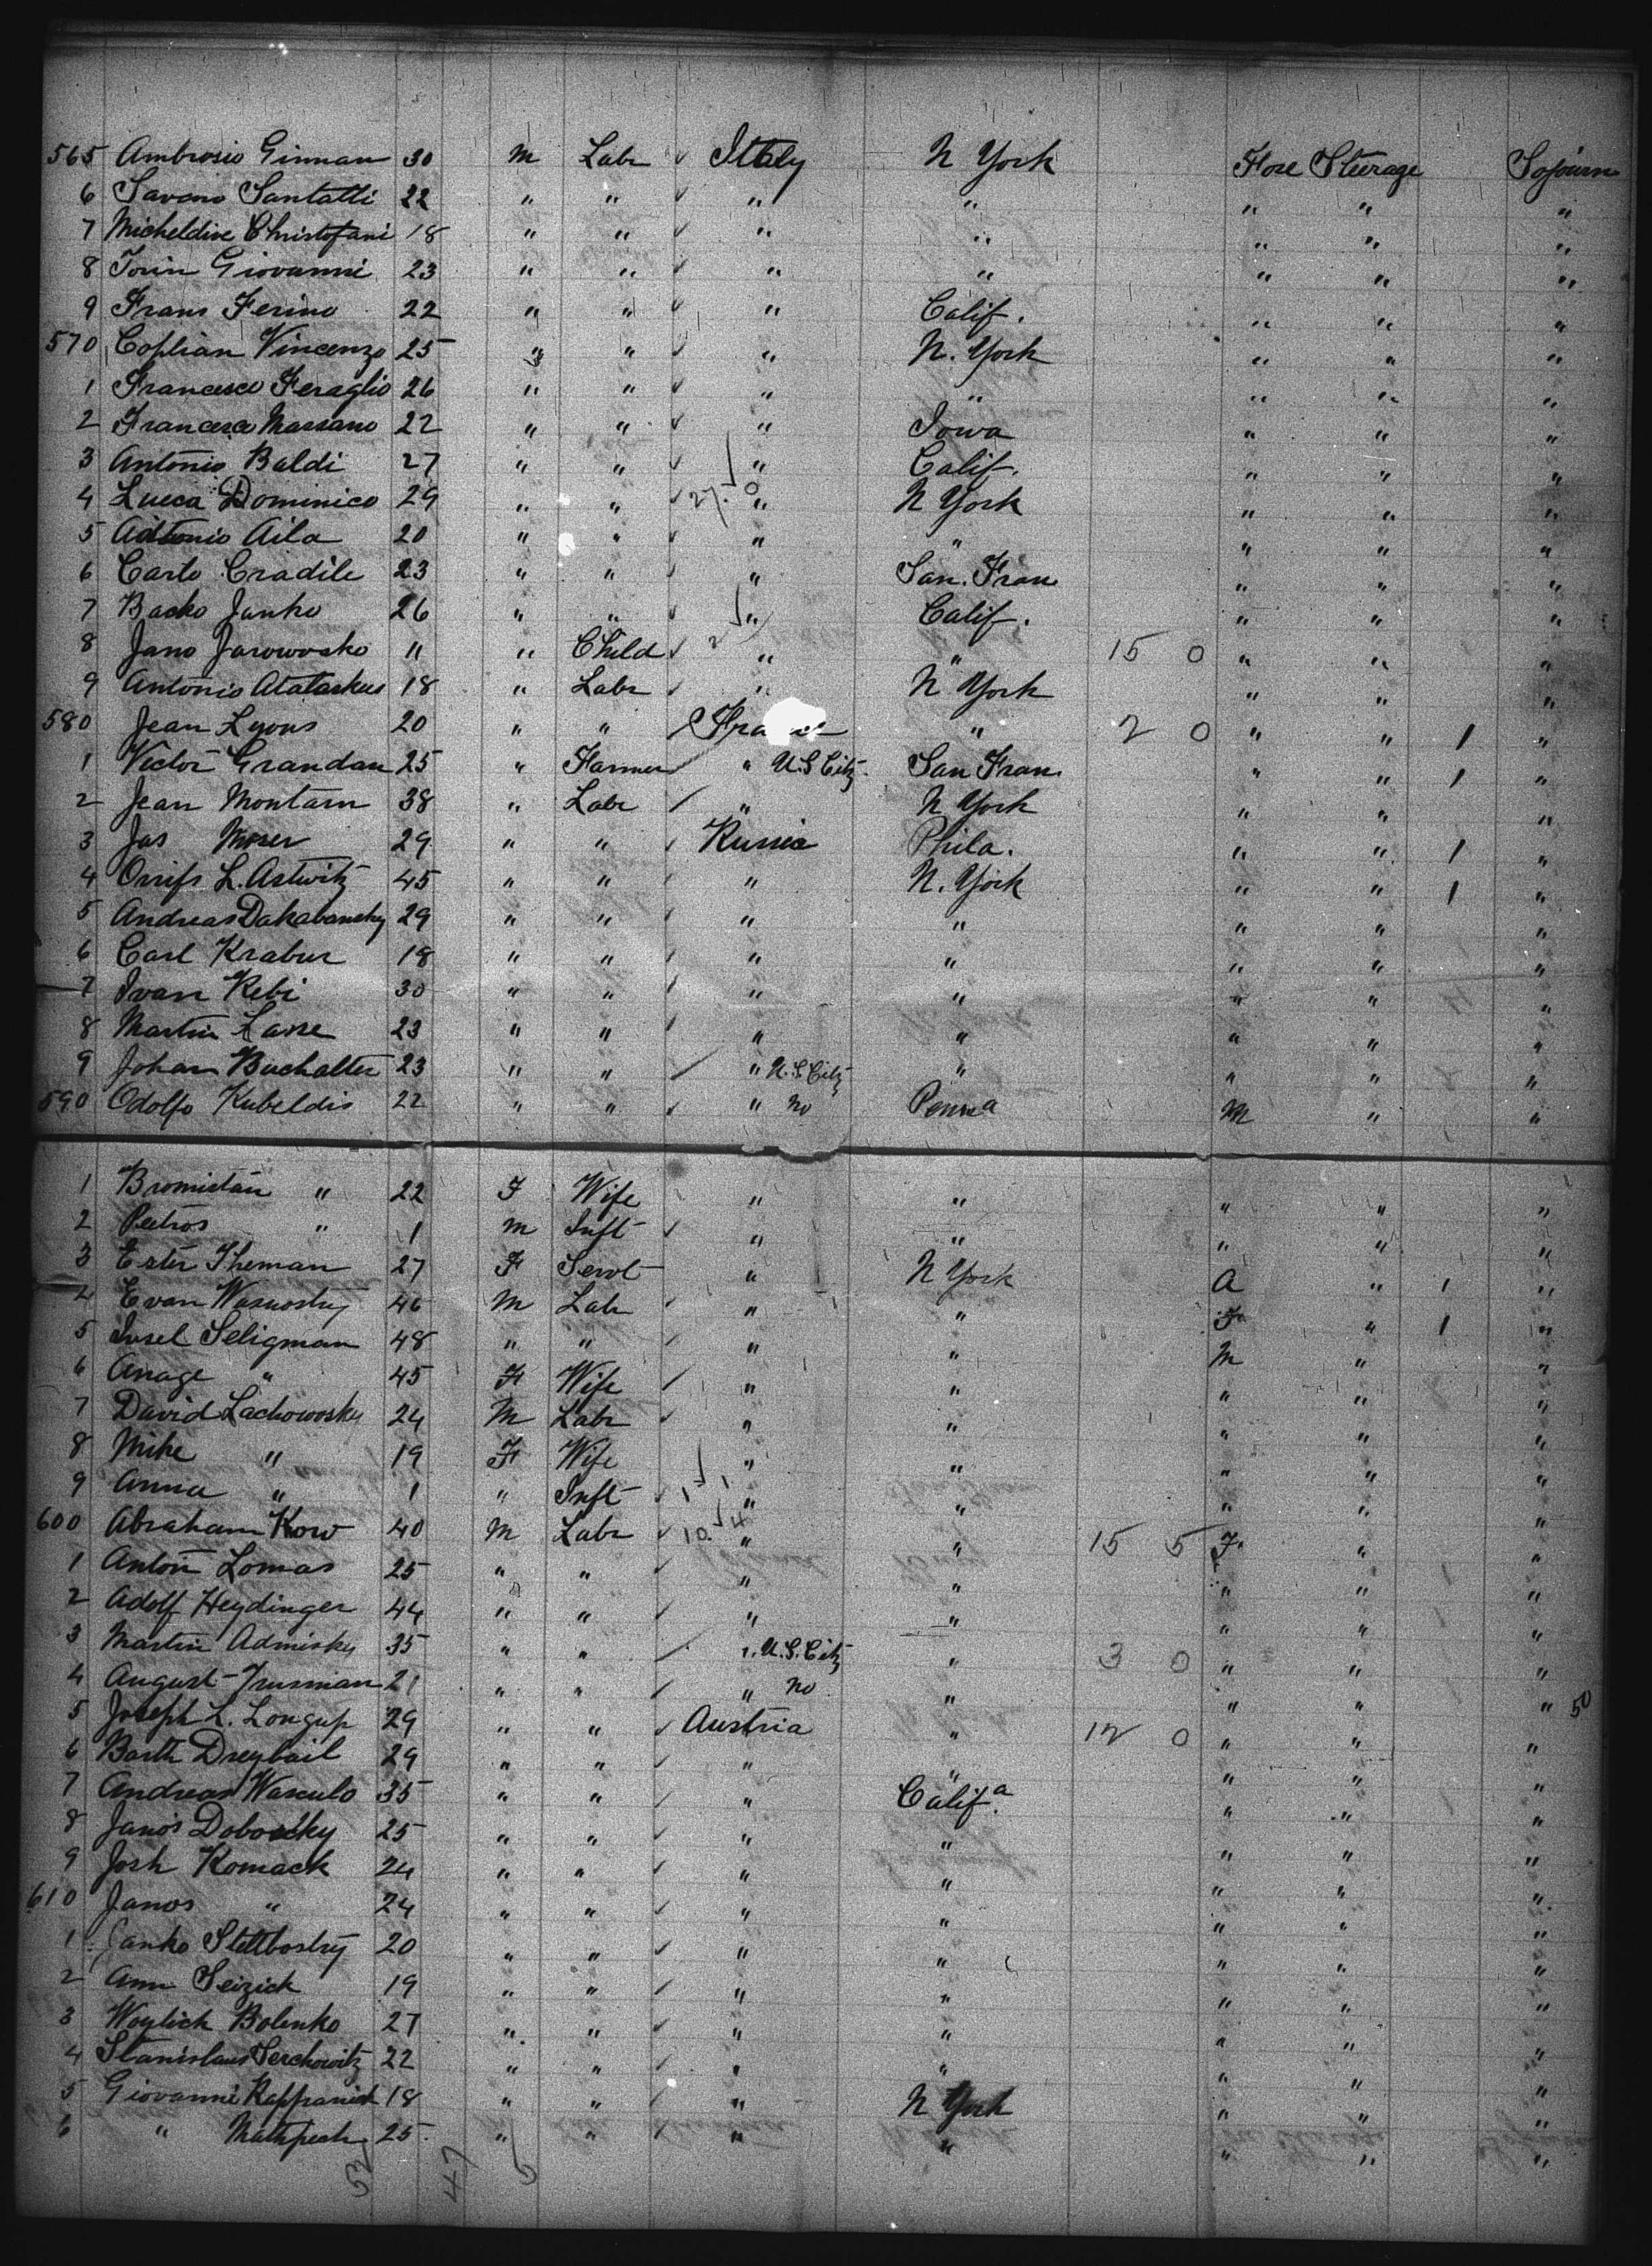 565 Ambrosio Ginnan 30 m Labr ✓ Italy N York Fore Steerage Sojourn
6 Savono Santatti 22 " " ✓ " " " " "
7 Micheldive Christofani 18 " " ✓ " " " " "
8 Torin Giovanni 23 " " ✓ " " " " "
9 Frans Ferino 22 " " ✓ " Calif. " " "
570 Coplian Vincenzo 25 " " ✓ " N. York " " "
1 Francesco Feraglio 26 " " ✓ " " " " "
2 Francesca Massano 22 " " ✓ " Iowa " " "
3 Antonio Baldi 27 " " ✓ " Calif. " " "
4 Lucca Dominico 29 " " ✓ 27. 0 " N York " " "
5 Antonio Aila 20 " " ✓ " " " " "
6 Carlo Cradile 23 " " ✓ " San. Fran " " "
7 Backo Janko 26 " " ✓ " Calif. " " "
8 Jano Jarowosko 11 " Child ✓ 2 " " 15 0 " " "
9 Antonis Atataskus 18 " Labr ✓ " N York " " "
580 Jean Lyons 20 " " / " 2 0 " " 1 "
1 Victor Grandan 25 " Farmer / " U.S Citz. San Fran. " " 1 "
2 Jean Montarn 38 " Labr / " N York " " "
3 Jas Moser 29 " " ✓ Russia Phila. " " 1 "
4 L. Astwitz 45 " " / " N. York " " 1 "
5 Andreas Dakabansky 29 " " / " " " " "
6 Carl Krabur 18 " " / " " " " "
7 Ivan Kebi 30 " " / " " " " "
8 Martin Lane 23 " " / " " " " "
9 Johan Buchalter 23 " " / " U.S. Citz " " " "
590 Odolfo Kubeldis 22 " " ✓ " no Penna M " "
1 Bromistan " 22 F Wife " " " " "
2 Petros " 1 m Inft ✓ " " " " "
3 Ester Theman 27 F Servt " N York A " 1 "
4 Evan Wasnosky 46 M Labr ✓ " " F " 1 "
5 Insel Seligman 48 " " / " " M " "
6 Anage " 45 F Wife / " " " " "
7 David Lachowosky 24 M Labr ✓ " " " " "
8 Mike " 19 F Wife " " " " "
9 Anna " 1 " Inft ✓ 1 1 " " " " "
600 Abraham Kow 40 m Labr ✓ 10. 4 " " 15 5 F " "
1 Anton Lomas 25 " " ✓ " " " " "
2 Adolf Heydinger 44 " " ✓ " " " " "
3 Martin Admisky 35 " " / " U.S. Citz " 3 0 " " "
4 August Trusman 21 " " / " no " " " " 50
5 Joseph L. Longup 29 " " ✓ Austria " 12 0 " " "
6 Barth Dreybail 29 " " ✓ " " " " "
7 Andreas Wasculo 35 " " / " Califa. " " "
8 Janos Dobocky 25 " " ✓ " " " " "
9 Josh Komack 24 " " ✓ " " " " "
610 Janos " 24 " " ✓ " " " " "
1 Janko Stettbosky 20 " " ✓ " " " " "
2 Ann Seizick 19 " " / " " " " "
3 Woylick Bolenko 27 " " ✓ " " " " "
4 Stanislaus Serchowitz 22 " " / " " " " "
5 Giovanni Rappanich 18 " " / " N York " " "
6 " Mathpech 25. " " / " " " " "
52 47 5